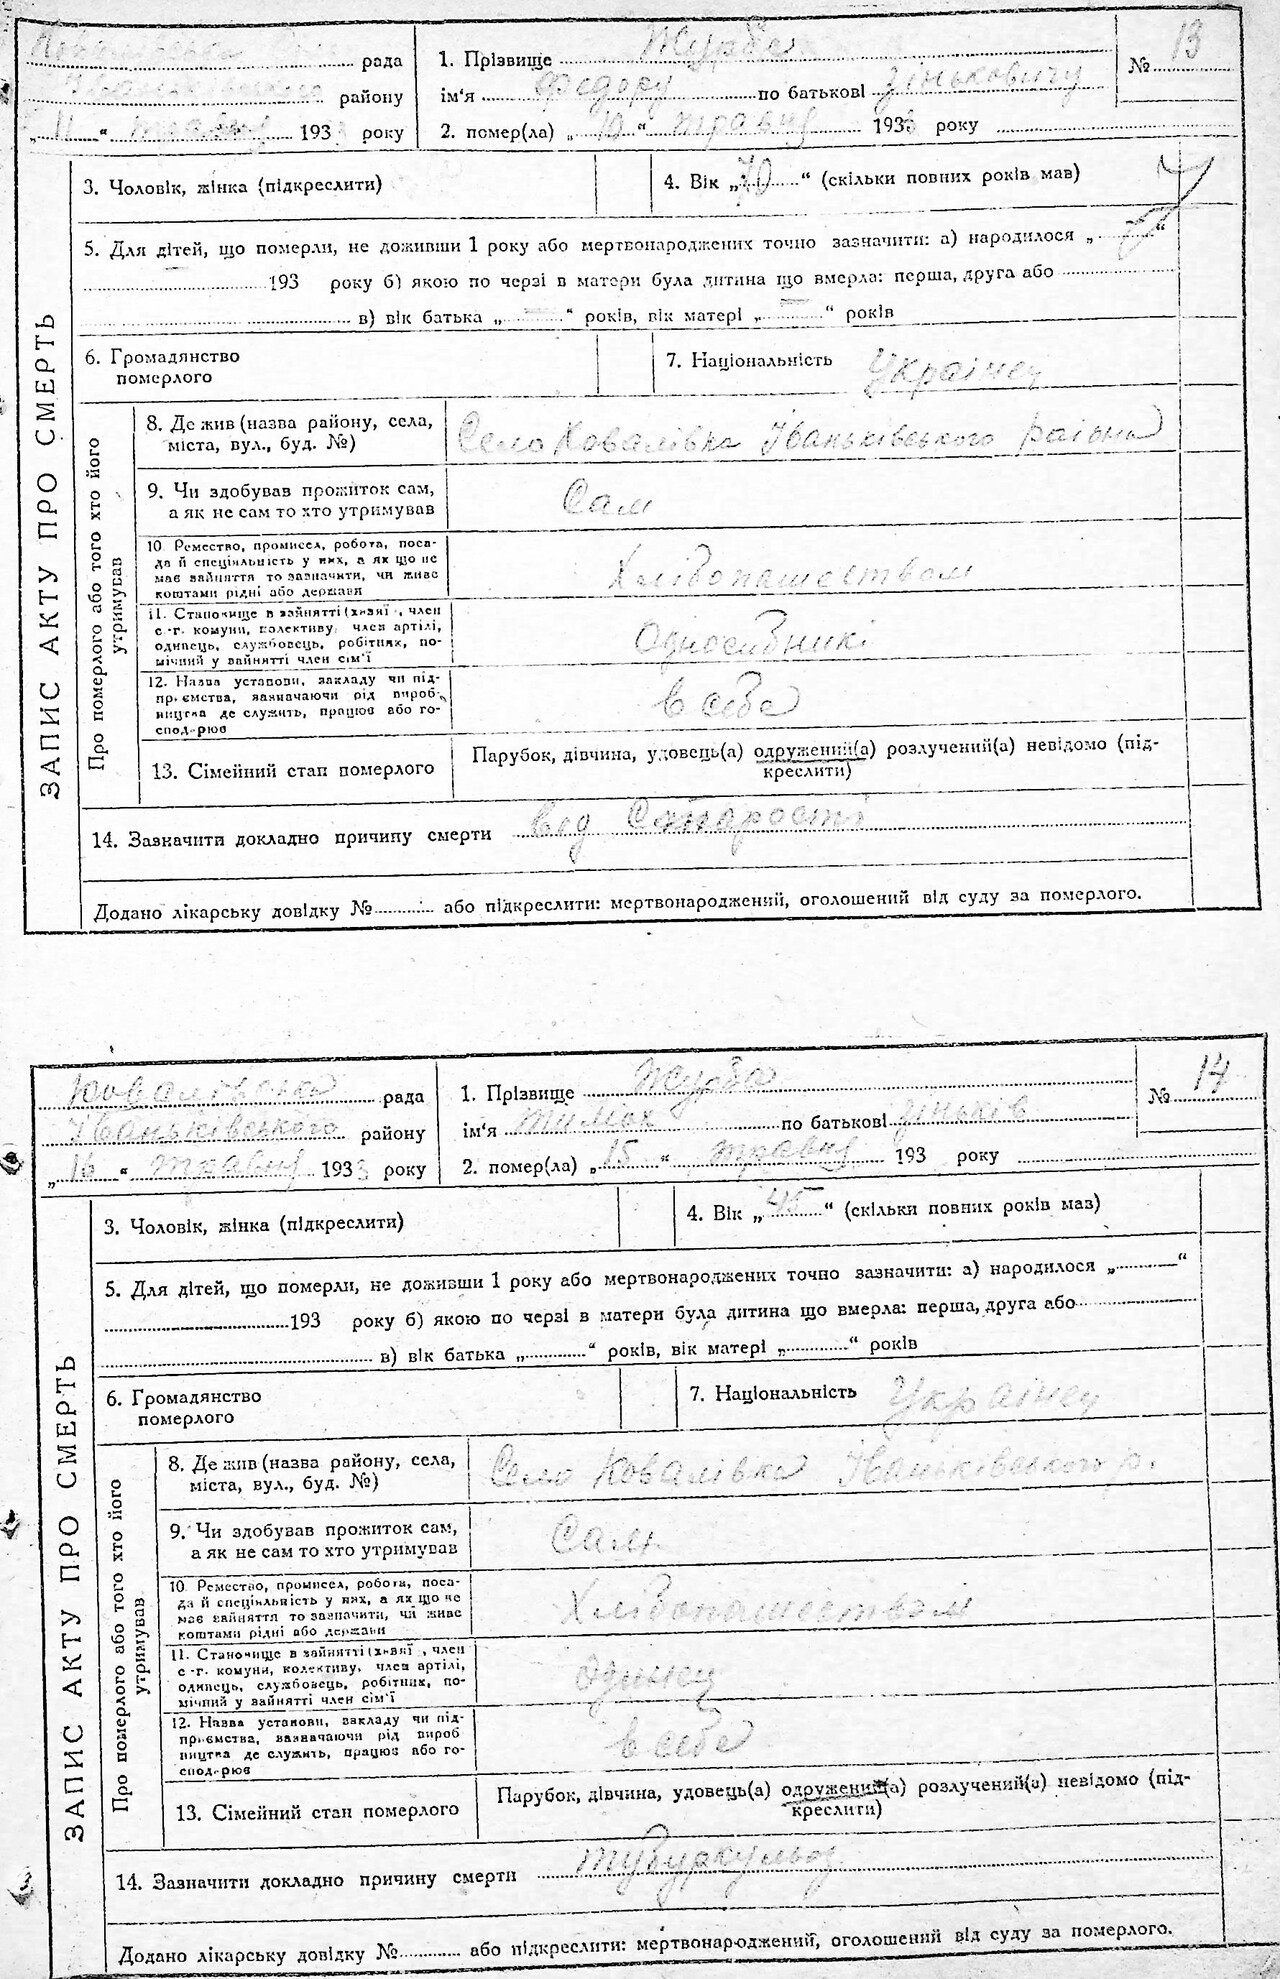 рада
Іваньківського району
„ 11 “ травня 193 року
1. Прізвище Журба
ім'я Федору по батькові Зіньковичу
2. помер(ла) „ 10 “ травня 193 року
№ 13
3. Чоловік, жінка (підкреслити)
4. Вік „ 70 “ (скільки повних років мав)
5. Для дітей, що померли, не доживши 1 року або мертвонароджених точно зазначити: а) народилося „ “
193 року б) якою по черзі в матери була дитина що вмерла: перша, друга або
в) вік батька „ “ років, вік матері „ “ років
6. Громадянство
померлого
7. Національність Украінец
ЗАПИС АКТУ ПРО СМЕРТЬ
Про померлого або того хто його
утримував
8. Де жив (назва району, села,
міста, вул., буд. №)
Село Ковалівка Іваньківського раіона
9. Чи здобував прожиток сам,
а як не сам то хто утримував
Сам
10 Ремество, промисел, робота, поса-
да й спеціяльність у них, а як що не
має зайняття то зазначити, чи живе
коштами рідні або держави
Хлібопашеством
11. Становище в зайнятті (хазяї , член
с -г. комуни, колективу, член артілі,
одинець, службовець, робітник, по-
мічний у зайнятті член сім'ї
Односібникі
12. Назва установи, закладу чи під-
приємства, зазначаючи рід вироб-
ництва де служить, працює або го-
сподарює
в себе
13. Сімейний стан померлого
Парубок, дівчина, удовець(а) одружений(а) розлучений(а) невідомо (під-
креслити)
14. Зазначити докладно причину смерти від Старості
Додано лікарську довідку № або підкреслити: мертвонароджений, оголошений від суду за померлого.
Ковалівська рада
Іваньківського району
„ 16 “ травня 1933 року
1. Прізвище Журба
ім'я Тимох по батькові Зіньків
2. помер(ла) „ 15 “ травня 193 року
№ 14
3. Чоловік, жінка (підкреслити)
4. Вік „ 45 “ (скільки повних років маз)
5. Для дітей, що померли, не доживши 1 року або мертвонароджених точно зазначити: а) народилося „ “
193 року б) якою по черзі в матери була дитина що вмерла: перша, друга або
в) вік батька „ “ років, вік матері „ “ років
6. Громадянство
померлого
7. Національність Украінец
ЗАПИС АКТУ ПРО СМЕРТЬ
Про померлого або того хто його
утримував
8. Де жив (назва району, села,
міста, вул., буд. №)
Село Ковалівка Іваньківського р.
9. Чи здобував прожиток сам,
а як не сам то хто утримував
Сам
10 Ремество, промисел, робота, поса-
да й спеціяльність у них, а як що не
має зайняття то зазначити, чи живе
коштами рідні або держави
Хлібопашеством
11. Становище в зайнятті (хазяї , член
с -г. комуни, колективу, член артілі,
одинець, службовець, робітник, по-
мічний у зайнятті член сім'ї
Одинец
12. Назва установи, закладу чи під-
приємства, зазначаючи рід вироб
ництва де служить, працює або го-
сподарює
в себе
13. Сімейний стан померлого
Парубок, дівчина, удовець(а) одружений(а) розлучений(а) невідомо (під-
креслити)
14. Зазначити докладно причину смерти тубуркульоз
Додано лікарську довідку № або підкреслити: мертвонароджений, оголошений від суду за померлого.
3